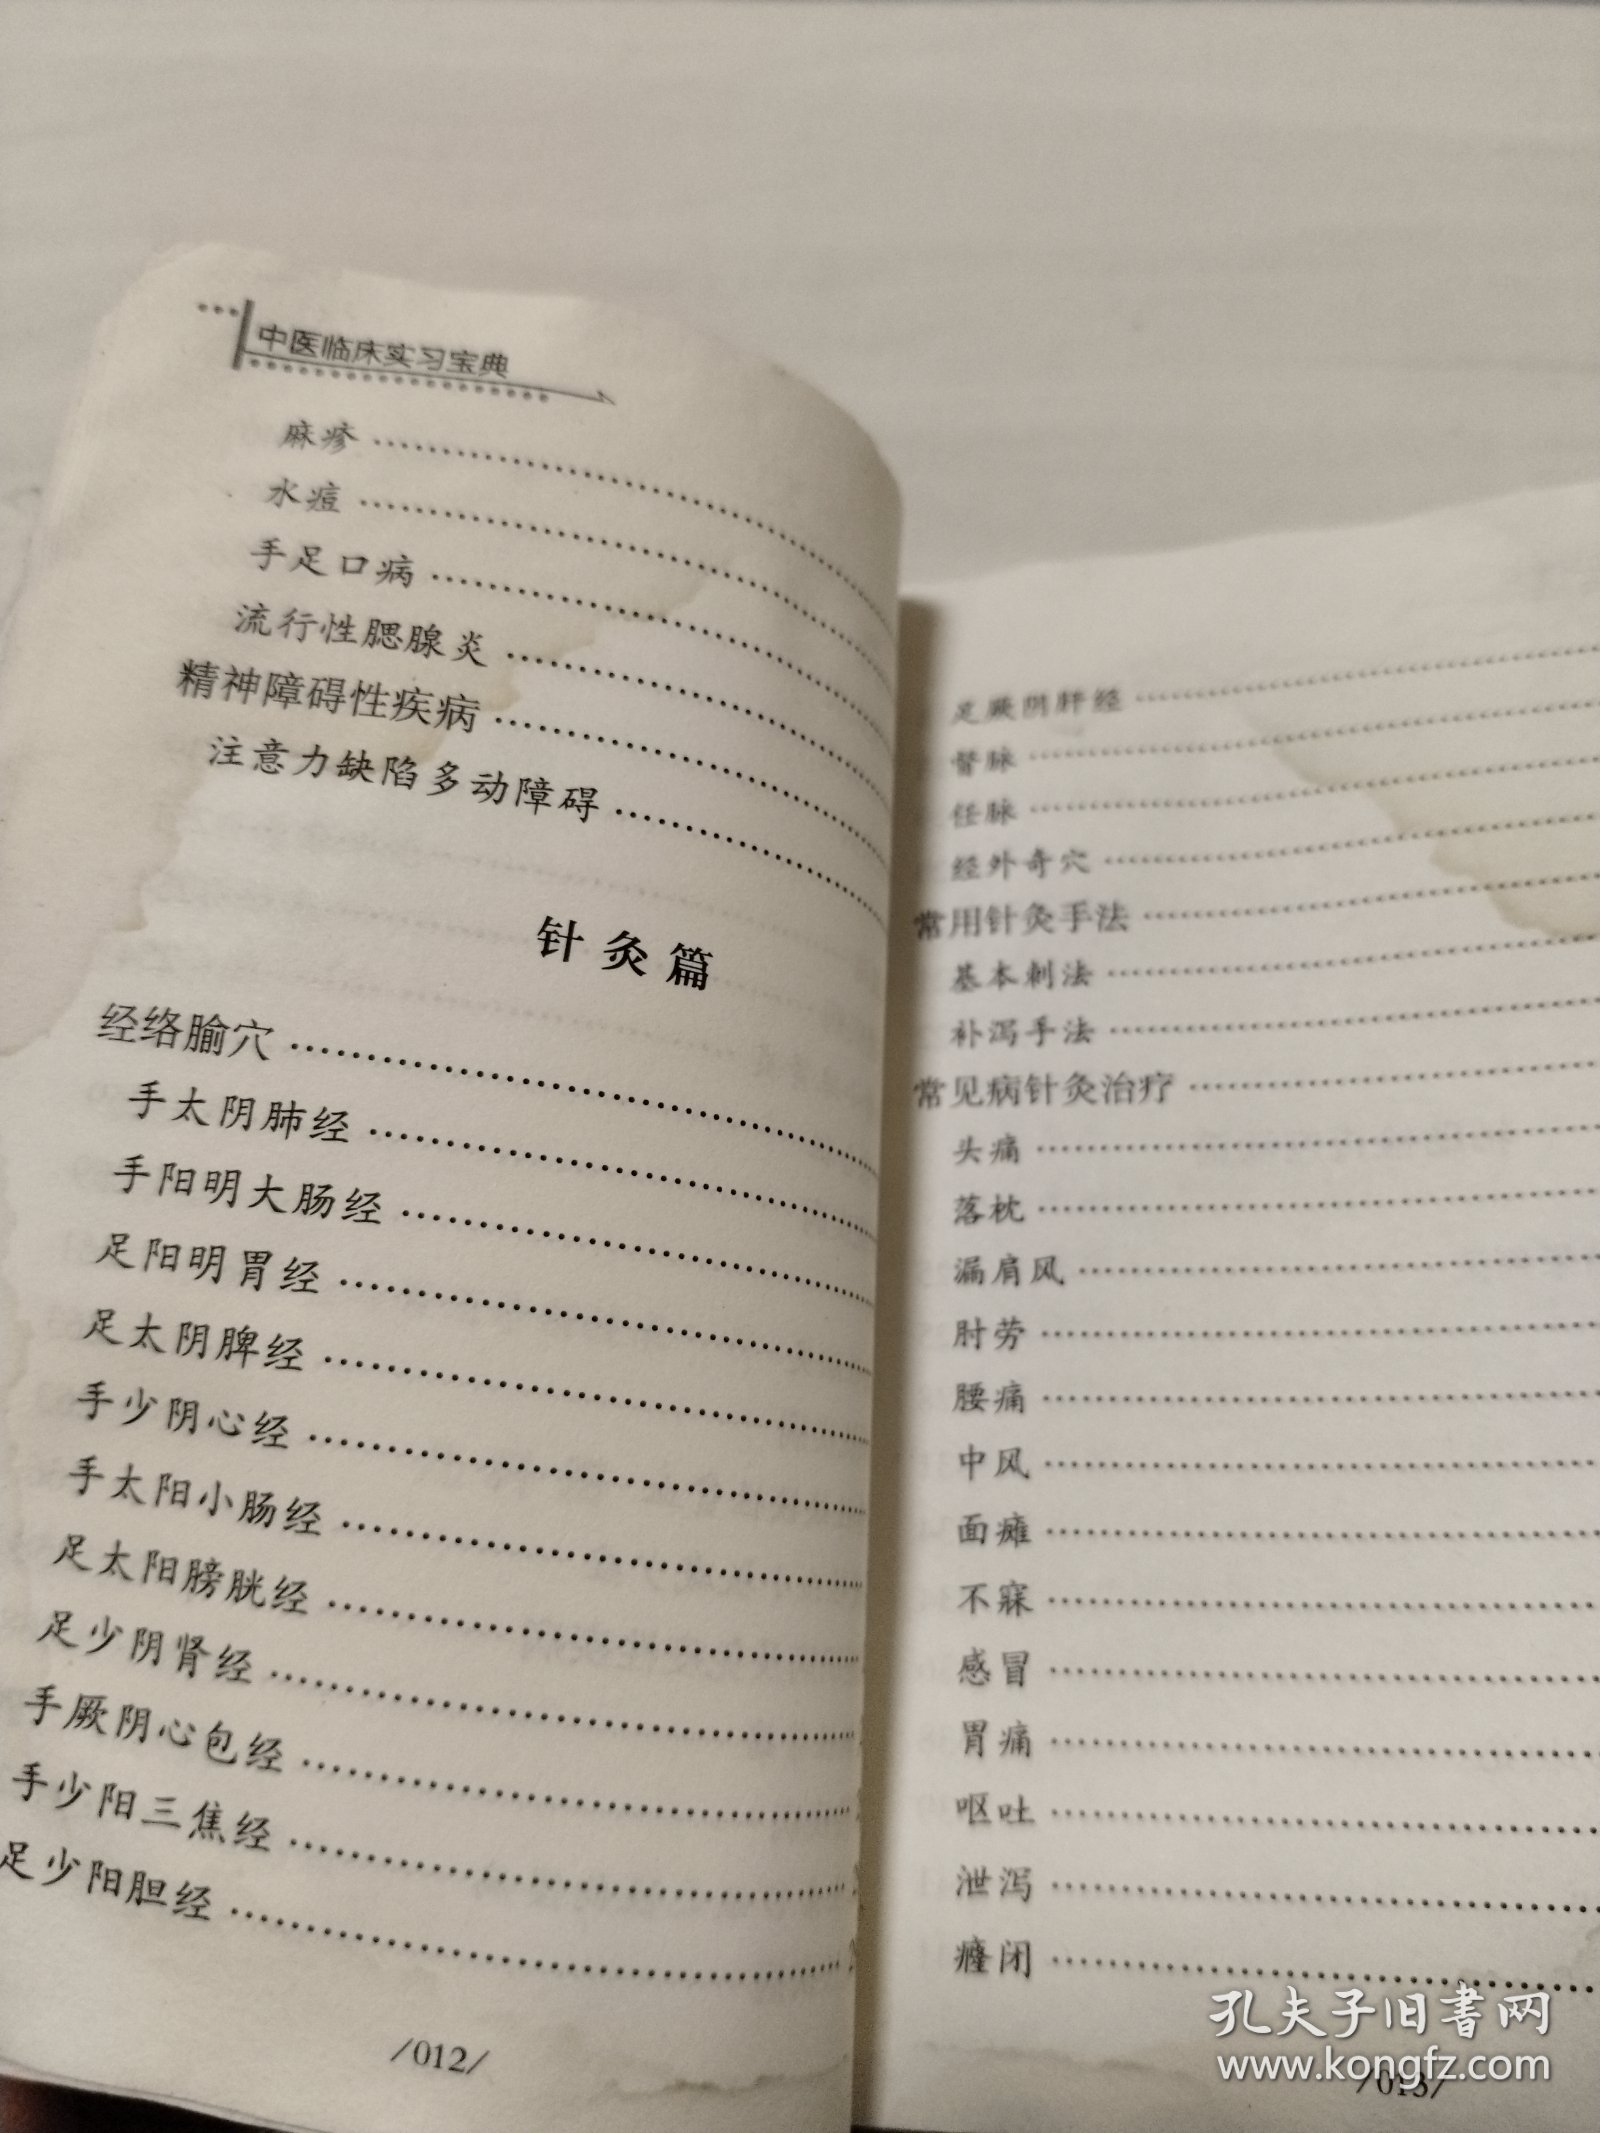 中医临床实习宝典
麻疹
水痘
手足口病
流行性腮腺炎
精神障碍性疾病
注意力缺陷多动障碍
针灸篇
经络腧穴
手太阴肺经
手阳明大肠经
足阳明胃经
足太阴脾经
手少阴心经
手太阳小肠经
足太阳膀胱经
足少阴肾经
手厥阴心包经
手少阳三焦经
足少阳胆经
/012/
足厥阴肝经
督脉
任脉
经外奇穴
常用针灸手法
基本刺法
补泻手法
常见病针灸治疗
头痛
落枕
漏肩风
肘劳
腰痛
中风
面瘫
不寐
感冒
胃痛
呕吐
泄泻
癃闭
/013/
孔夫子旧书网
www.kongfz.com